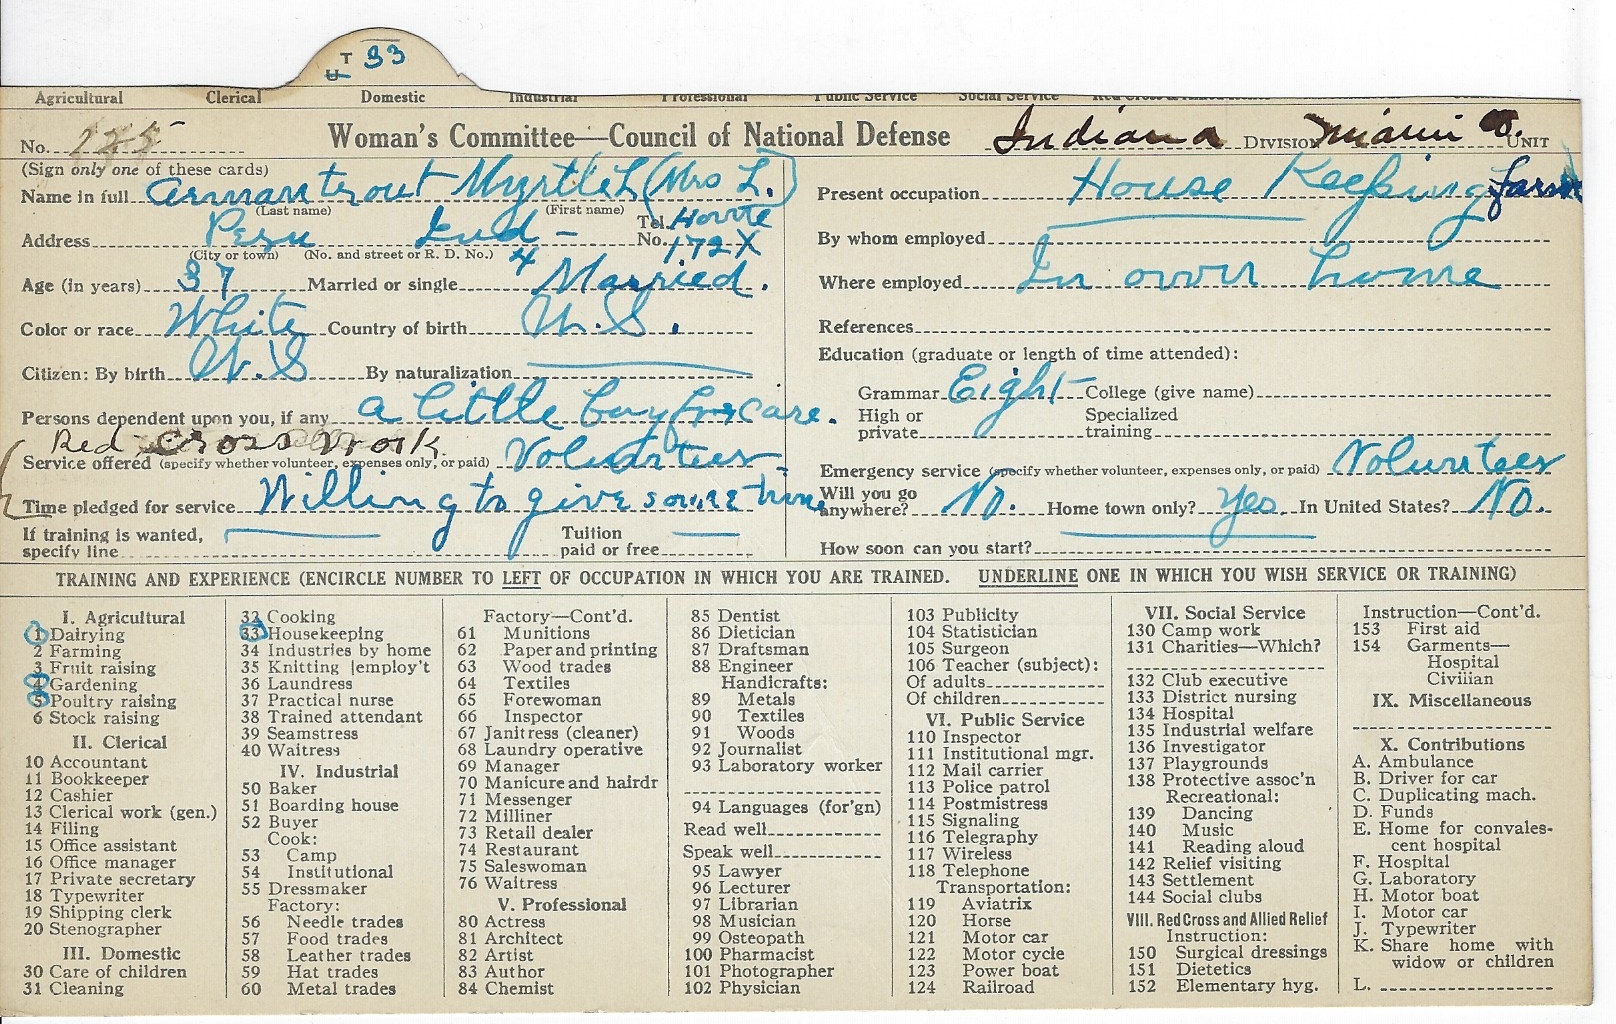 T 33
U
Agricultural Clerical Domestic Industrial Professional Public Service Social Service
No. 225 Woman's Committee—Council of National Defense Indiana DIVISION Miami Co. UNIT
(Sign only one of these cards)
Name in full Armantrout Myrtle L (Mrs L.)
(Last name) (First name)
Address Peru Ind - Tel. No. Home 172X
(City or town) (No. and street or R. D. No.) 4
Age (in years) 37 Married or single Married.
Color or race White Country of birth U.S.
Citizen: By birth U.S By naturalization
Persons dependent upon you, if any a little boy for care.
Red Cross Work
Service offered (specify whether volunteer, expenses only, or paid) Volunteer
Time pledged for service Willing to give some time
If training is wanted, specify line
Tuition paid or free
Present occupation House Keeping farm
By whom employed
Where employed In own home
References
Education (graduate or length of time attended):
Grammar Eight College (give name)
High or private Specialized training
Emergency service (specify whether volunteer, expenses only, or paid) Volunteer
Will you go anywhere? No. Home town only? Yes In United States? No.
How soon can you start?
TRAINING AND EXPERIENCE (ENCIRCLE NUMBER TO LEFT OF OCCUPATION IN WHICH YOU ARE TRAINED. UNDERLINE ONE IN WHICH YOU WISH SERVICE OR TRAINING)
I. Agricultural
1 Dairying
2 Farming
3 Fruit raising
4 Gardening
5 Poultry raising
6 Stock raising
II. Clerical
10 Accountant
11 Bookkeeper
12 Cashier
13 Clerical work (gen.)
14 Filing
15 Office assistant
16 Office manager
17 Private secretary
18 Typewriter
19 Shipping clerk
20 Stenographer
III. Domestic
30 Care of children
31 Cleaning
32 Cooking
33 Housekeeping
34 Industries by home
35 Knitting [employ't
36 Laundress
37 Practical nurse
38 Trained attendant
39 Seamstress
40 Waitress
IV. Industrial
50 Baker
51 Boarding house
52 Buyer
Cook:
53 Camp
54 Institutional
55 Dressmaker
Factory:
56 Needle trades
57 Food trades
58 Leather trades
59 Hat trades
60 Metal trades
Factory—Cont'd.
61 Munitions
62 Paper and printing
63 Wood trades
64 Textiles
65 Forewoman
66 Inspector
67 Janitress (cleaner)
68 Laundry operative
69 Manager
70 Manicure and hairdr
71 Messenger
72 Milliner
73 Retail dealer
74 Restaurant
75 Saleswoman
76 Waitress
V. Professional
80 Actress
81 Architect
82 Artist
83 Author
84 Chemist
85 Dentist
86 Dietician
87 Draftsman
88 Engineer
Handicrafts:
89 Metals
90 Textiles
91 Woods
92 Journalist
93 Laboratory worker
94 Languages (for'gn)
Read well
Speak well
95 Lawyer
96 Lecturer
97 Librarian
98 Musician
99 Osteopath
100 Pharmacist
101 Photographer
102 Physician
103 Publicity
104 Statistician
105 Surgeon
106 Teacher (subject):
Of adults
Of children
VI. Public Service
110 Inspector
111 Institutional mgr.
112 Mail carrier
113 Police patrol
114 Postmistress
115 Signaling
116 Telegraphy
117 Wireless
118 Telephone
Transportation:
119 Aviatrix
120 Horse
121 Motor car
122 Motor cycle
123 Power boat
124 Railroad
VII. Social Service
130 Camp work
131 Charities—Which?
132 Club executive
133 District nursing
134 Hospital
135 Industrial welfare
136 Investigator
137 Playgrounds
138 Protective assoc'n
Recreational:
139 Dancing
140 Music
141 Reading aloud
142 Relief visiting
143 Settlement
144 Social clubs
VIII. Red Cross and Allied Relief
Instruction:
150 Surgical dressings
151 Dietetics
152 Elementary hyg.
Instruction—Cont'd.
153 First aid
154 Garments—
Hospital
Civilian
IX. Miscellaneous
X. Contributions
A. Ambulance
B. Driver for car
C. Duplicating mach.
D. Funds
E. Home for convales-
cent hospital
F. Hospital
G. Laboratory
H. Motor boat
I. Motor car
J. Typewriter
K. Share home with
widow or children
L.